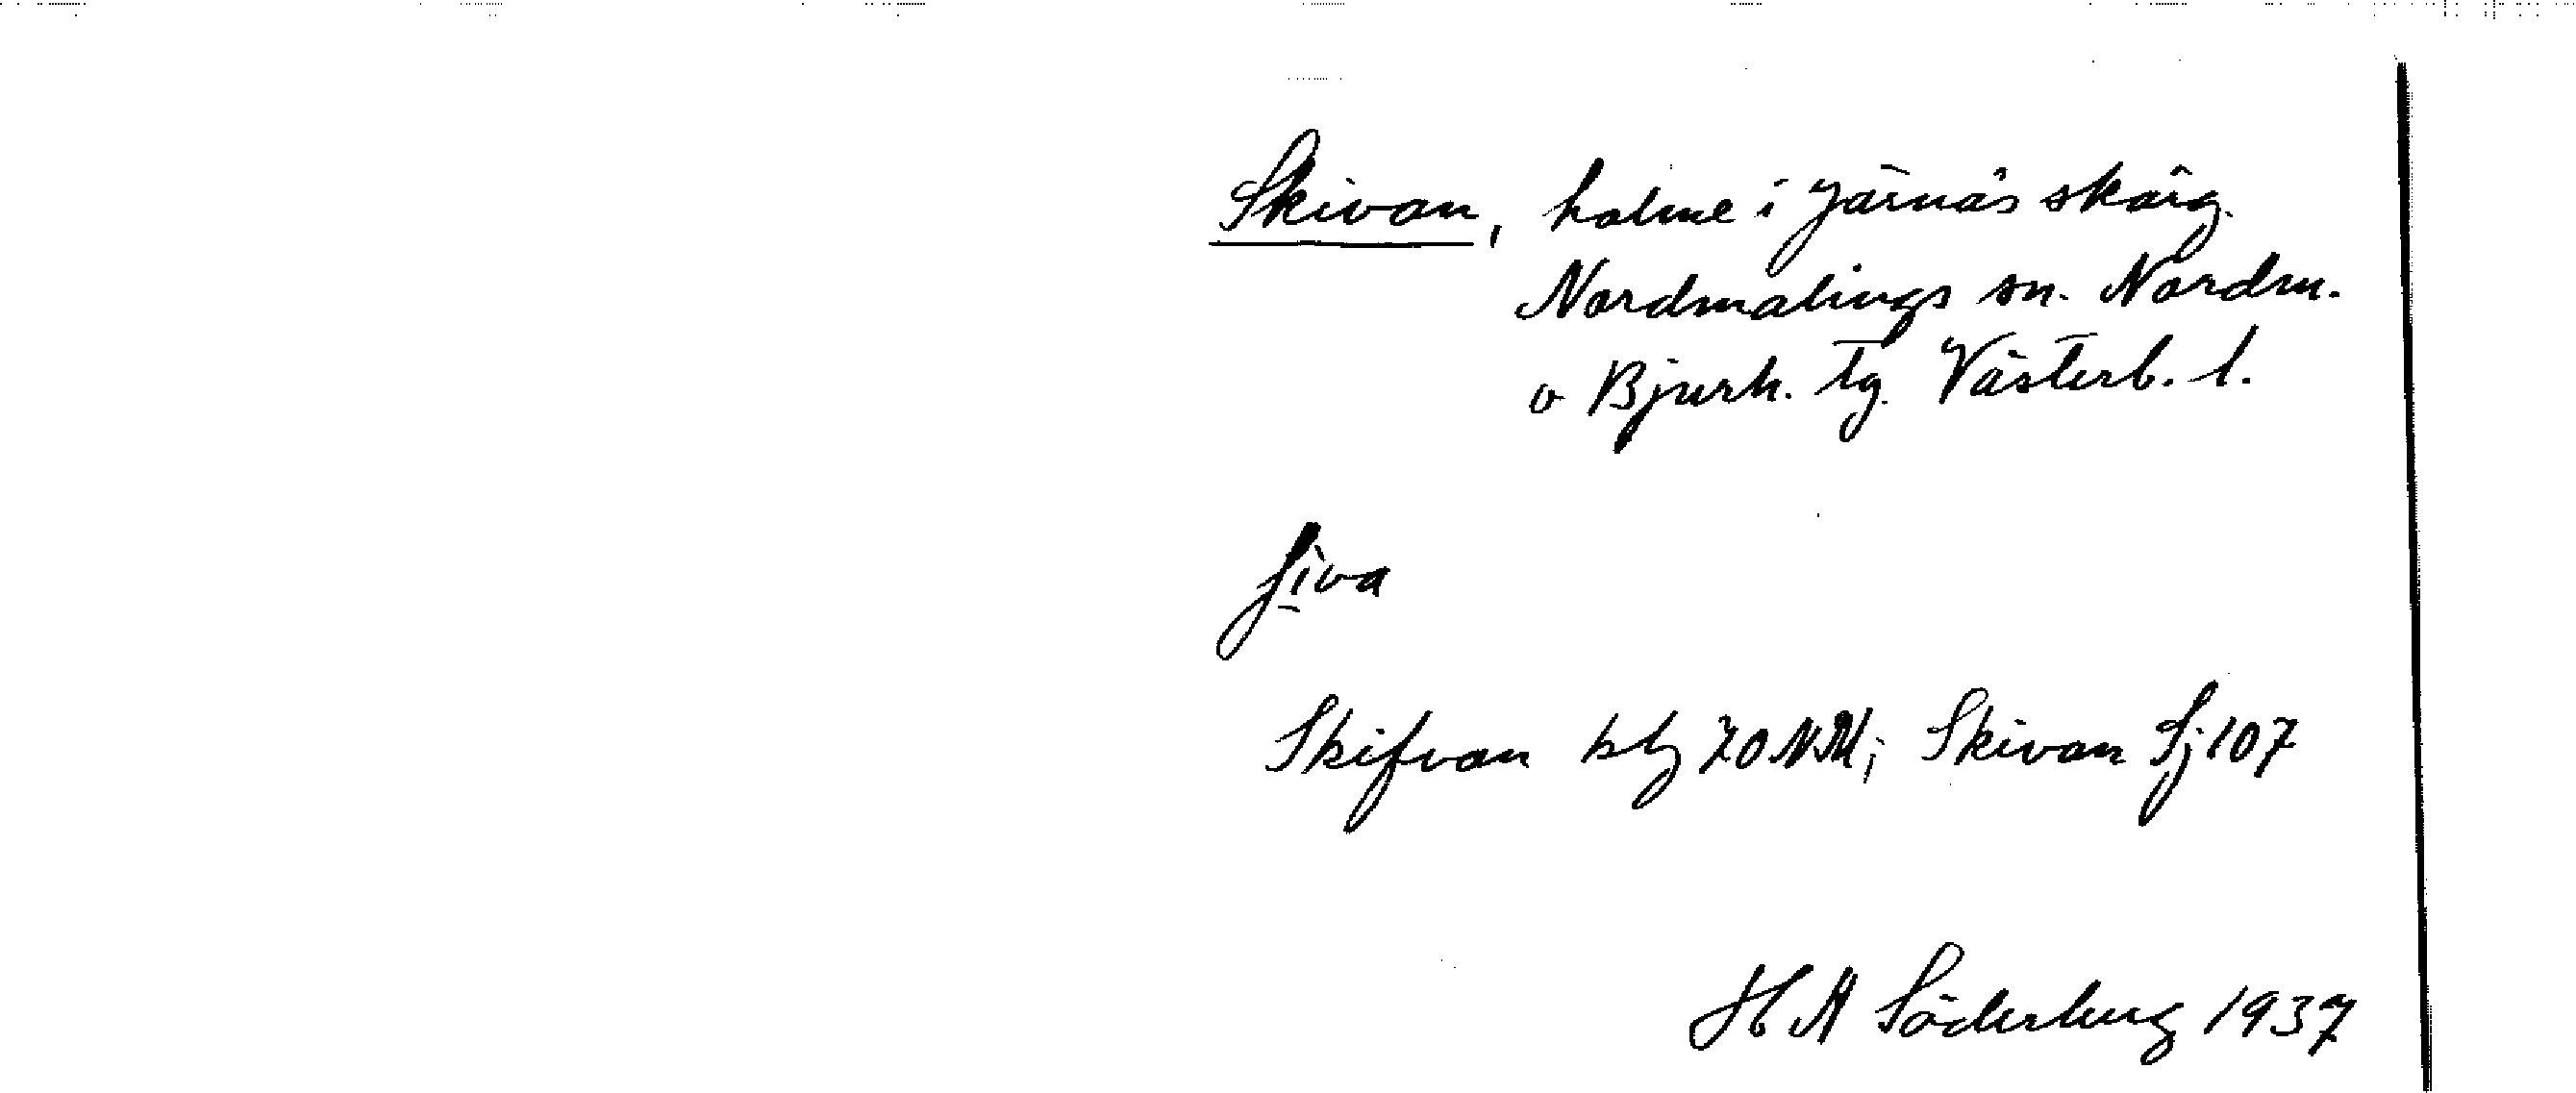 Skivan, holme i Järnäs skärg.
Nordmalings sn. Nordm.
o Bjurh. tg. Västerb. l.
ʃì̱va
Skifvan bl 70 NM; Skivan Sj 107
H A Söderberg 1937